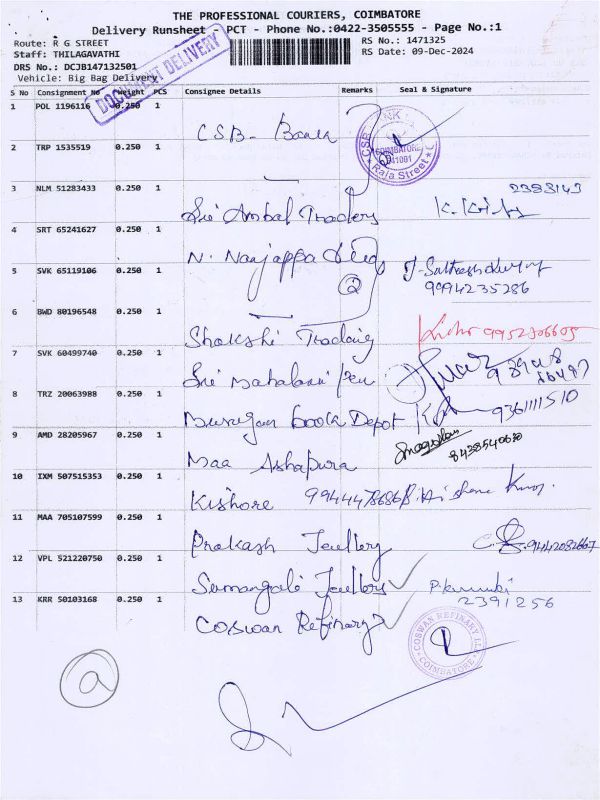 THE PROFESSIONAL COURIERS, COIMBATORE
Delivery Runsheet - PCT - Phone No.:0422-3505555 - Page No.:1
Route: R G STREET
RS No.: 1471325
Staff: THILAGAVATHI
RS Date: 09-Dec-2024
DRS No.: DCJB147132501
Vehicle: Big Bag Delivery
DOCUMENT DELIVERY
S No Consignment No Weight PCS Consignee Details Remarks Seal & Signature
1 POL 1196116 0.250 1
CSB- Bank
2 TRP 1535519 0.250 1
CSB BANK
COIMBATORE
641001
Raja Street
3 NLM 51283433 0.250 1
Sri Ambal Traders
2398143
4 SRT 65241627 0.250 1
N. Nanjappa
5 SVK 65119106 0.250 1
9994235286
6 BWD 80196548 0.250 1
Shakshi Trading
9952306605
7 SVK 60499740 0.250 1
Sri Mahalaxmi
8 TRZ 20063988 0.250 1
Murugan Book Depot
9361111510
9 AMD 28205967 0.250 1
Maa Ashapura
10 IXM 507515353 0.250 1
Kishore
11 MAA 705107599 0.250 1
Prakash Jewllery
12 VPL 521220750 0.250 1
Sumangali Jewllery
2391256
13 KRR 50103168 0.250 1
Coswan Refinary
COSWAN REFINARY
COIMBATORE
a